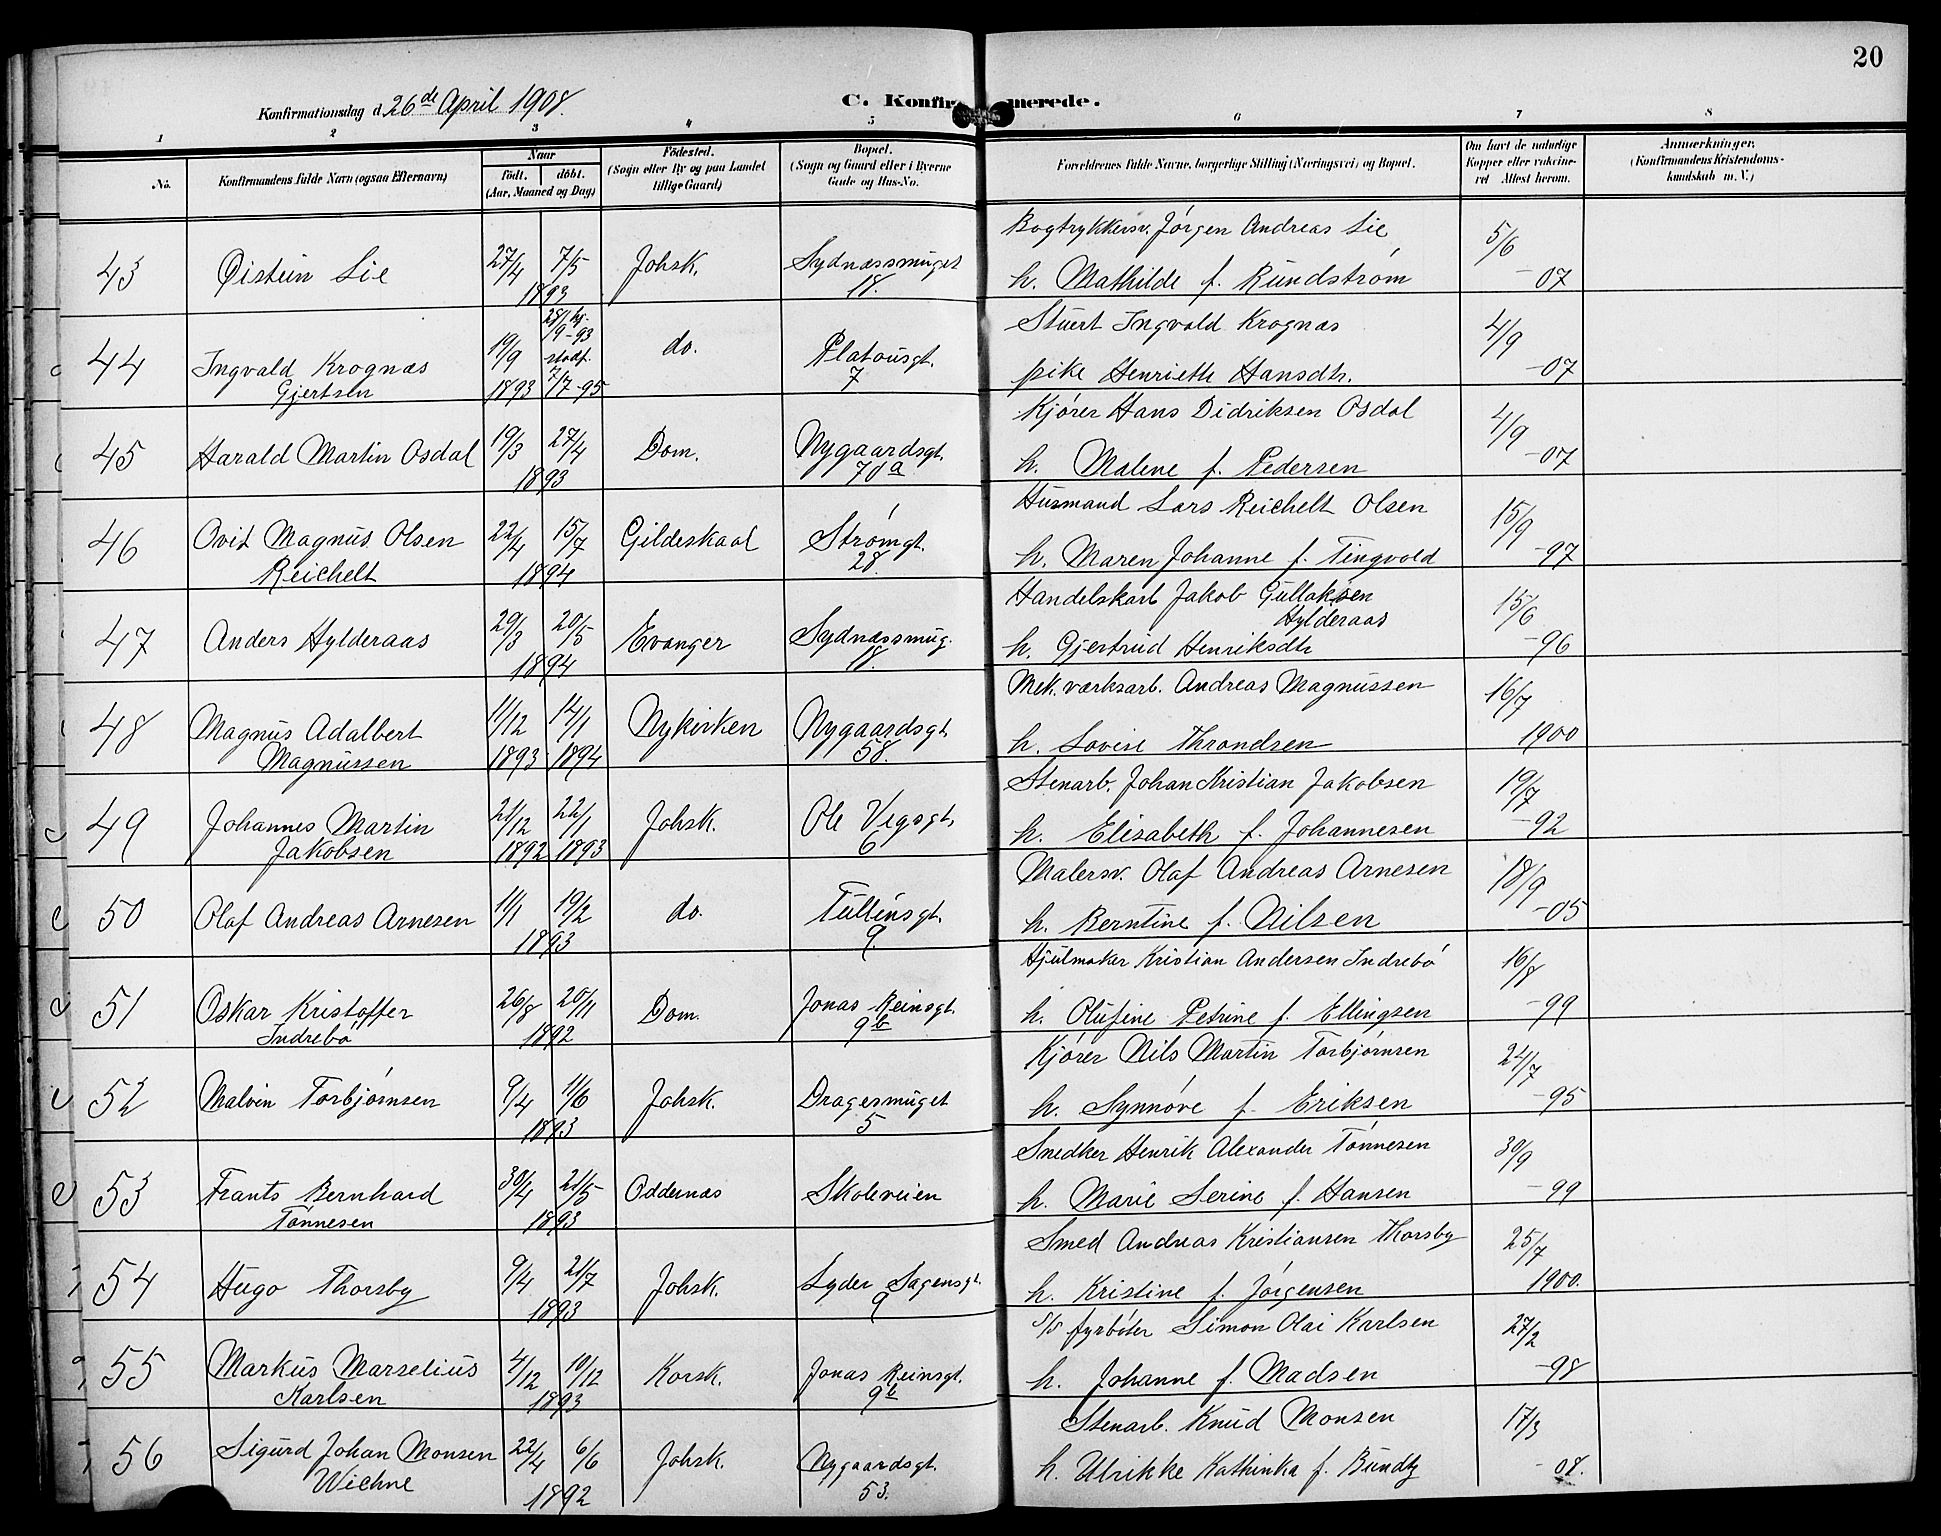 20
Konfirmationsdag d. 26de April 1908.
C. Konfirmerede.
1 2 3 4 5 6 7 8
No.
Konfirmandens fulde Navn (ogsaa Efternavn)
Naar
födt. döbt.
(Aar, Maaned og Dag)
Födested.
(Sogn eller By og paa Landet
tillige Gaard)
Bopæl.
(Sogn og Gaard eller i Byerne
Gade og Hus-No.
Forældrenes fulde Navne, borgerlige Stilling (Næringsvei) og Bopæl.
Om havt de naturlige
Kopper eller vakcine-
ret Attest herom.
Anmærkninger.
(Konfirmandens Kristendoms-
kundskab m. V.)
Bogtrykkersv. Jörgen Andreas Lie
43 Øistein Lie 27/4 7/5 Johsk. Sydnæssmuget 5/6
1893 18. h. Mathilde f. Rundström -07
28/9-93
Stuert Ingvald Krognæs
44 Ingvald Krognæs 19/9 stadf. do. Platousgt. 4/9
Gjertsen 1893 7/7-95 7 pike Henriette Hansdtr. -07
Kjörer Hans Didriksen Osdal
45 Harald Martin Osdal 19/3 27/4 Dom. Nygaardsgt. 4/9
1893 70a h. Malene f. Pedersen -07
Husmand Lars Reichelt Olsen
46 Ovit Magnus Olsen 22/4 15/7 Gildeskaal Strömgt. 15/9
Reichelt 1894 28. h. Maren Johanne f. Tingvold -97
Handelskarl Jakob Gullaksen
Hylderaas
47 Anders Hylderaas 29/3 20/5 Evanger Sydnæssmug. 15/6
1894 18. h. Gjertrud Henriksdtr -96
Mek. værksarb. Andreas Magnussen
48 Magnus Adalbert 11/12 14/1 Nykirken Nygaardsgt. 16/7
Magnussen 1893 1894 58. h. Lovise Throndsen 1900
Stenarb. Johan Kristian Jakobsen
49 Johannes Martin 21/12 22/1 Johsk. Ole Vigsgt. 19/7
Jakobsen 1892 1893 6 h. Elisabeth f. Johannesen -92
Malersv. Olaf Andreas Arnesen
50 Olaf Andreas Arnesen 11/1 19/2 do. Tullinsgt. 18/9
1893 9. h. Berntine f. Nilsen -05
Hjulmaker Kristian Andersen Indrebö
51 Oskar Kristoffer 26/8 20/11 Dom. Jonas Reinsgt. 16/8
Indrebö 1892 9b h. Olufine Petrine f. Ellingsen -99
Kjörer Nils Martin Torbjörnsen
52 Malvin Torbjörnsen 9/4 11/6 Johsk. Dragesmuget 24/7
1893 5 h. Synnöve f. Eriksen -95
Snedker Henrik Alexander Tönnesen
53 Frants Bernhard 30/4 21/5 Oddernæs Skoleveien 30/9
Tönnesen 1893 h. Marie Serine f. Hansen -99
Smed Andreas Kristiansen Thorsby
54 Hugo Thorsby 9/4 21/7 Johsk. Lyder Sagensgt. 25/7
1893 9 h. Kristine f. Jörgensen 1900.
S/S fyrböter Simon Olai Karlsen
55 Markus Marselius 4/12 10/12 Korsk. Jonas Reinsgt. 27/2
Karlsen 1893 9b h. Johanne f. Madsen -98
Stenarb. Knud Monsen
56 Sigurd Johan Monsen 22/4 6/6 Johsk. Nygaardsgt. 17/3
Wiehne 1892 53. h. Ulrikke Kathinka f. Bundtz -08.